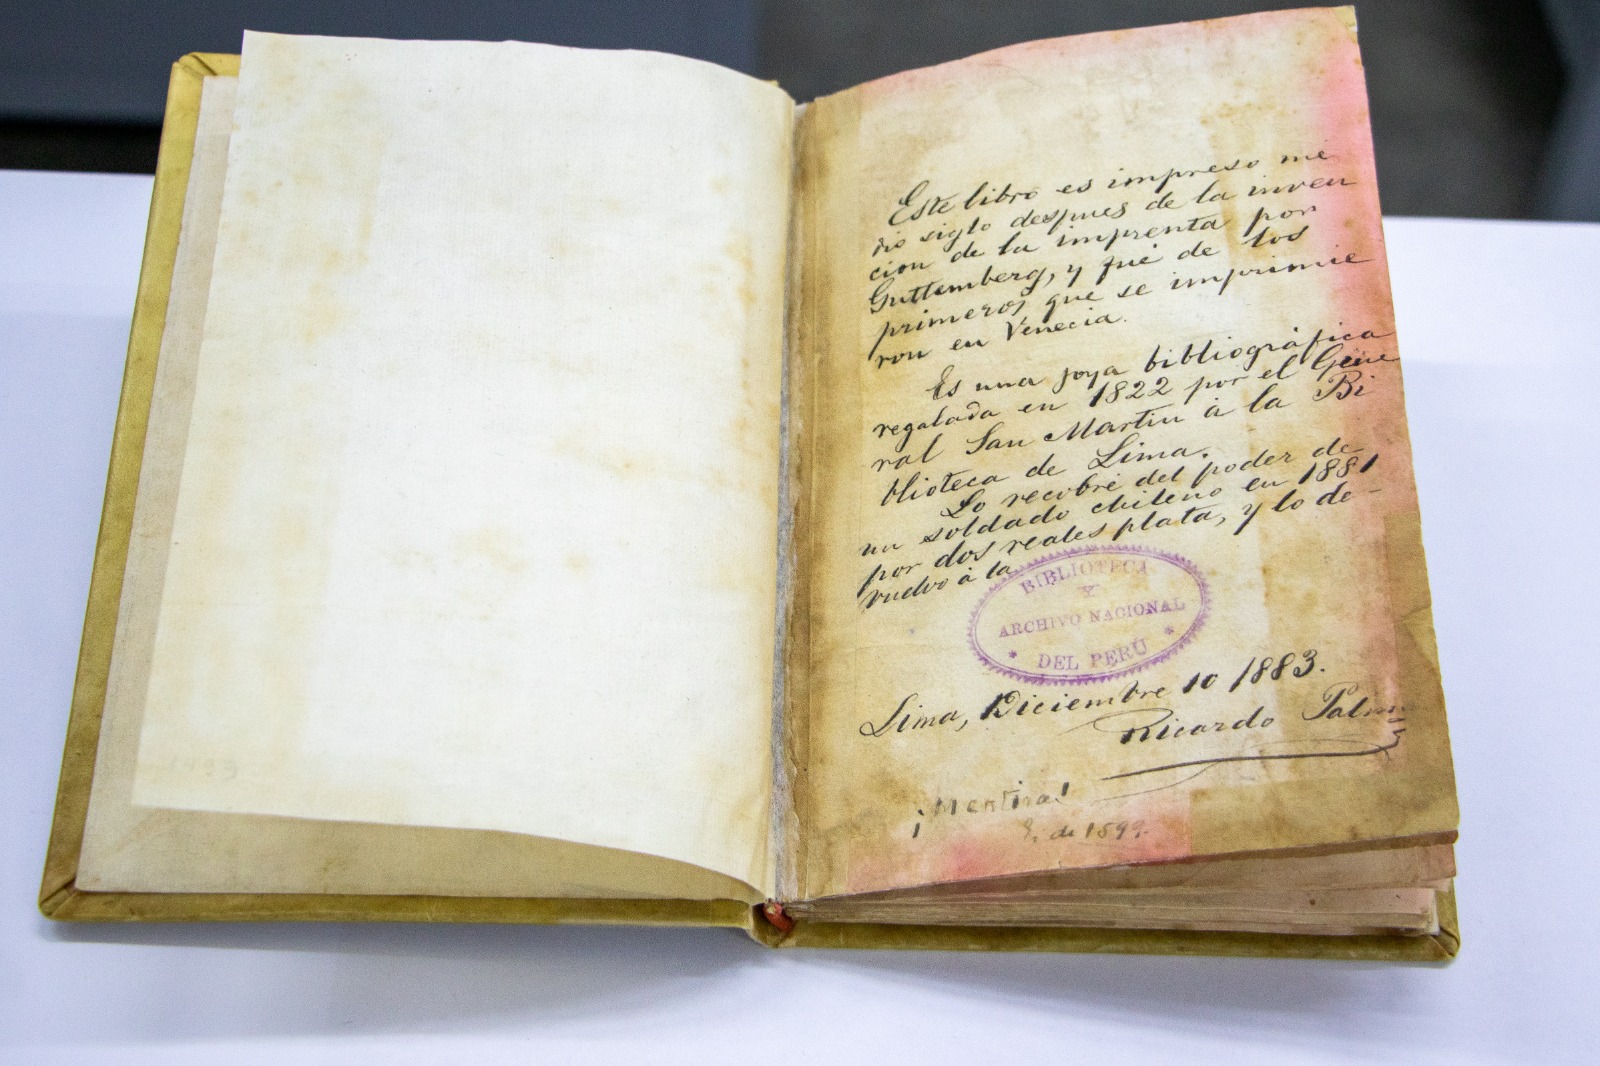 Este libro es impreso me
dio siglo despues de la inven
cion de la imprenta por
Guttemberg, y fué de los
primeros que se imprimie
ron en Venecia.
Es una joya bibliográfica
regalada en 1822 por el Gene
ral San Martin á la Bi
blioteca de Lima.
Lo recobré del poder de
un soldado chileno en 1881
por dos reales plata, y lo de-
vuelvo á la
BIBLIOTECA
Y
ARCHIVO NACIONAL
* DEL PERÚ *
Lima, Diciembre 10 1883.
Ricardo Palma
¡Mentira!
de 1599.